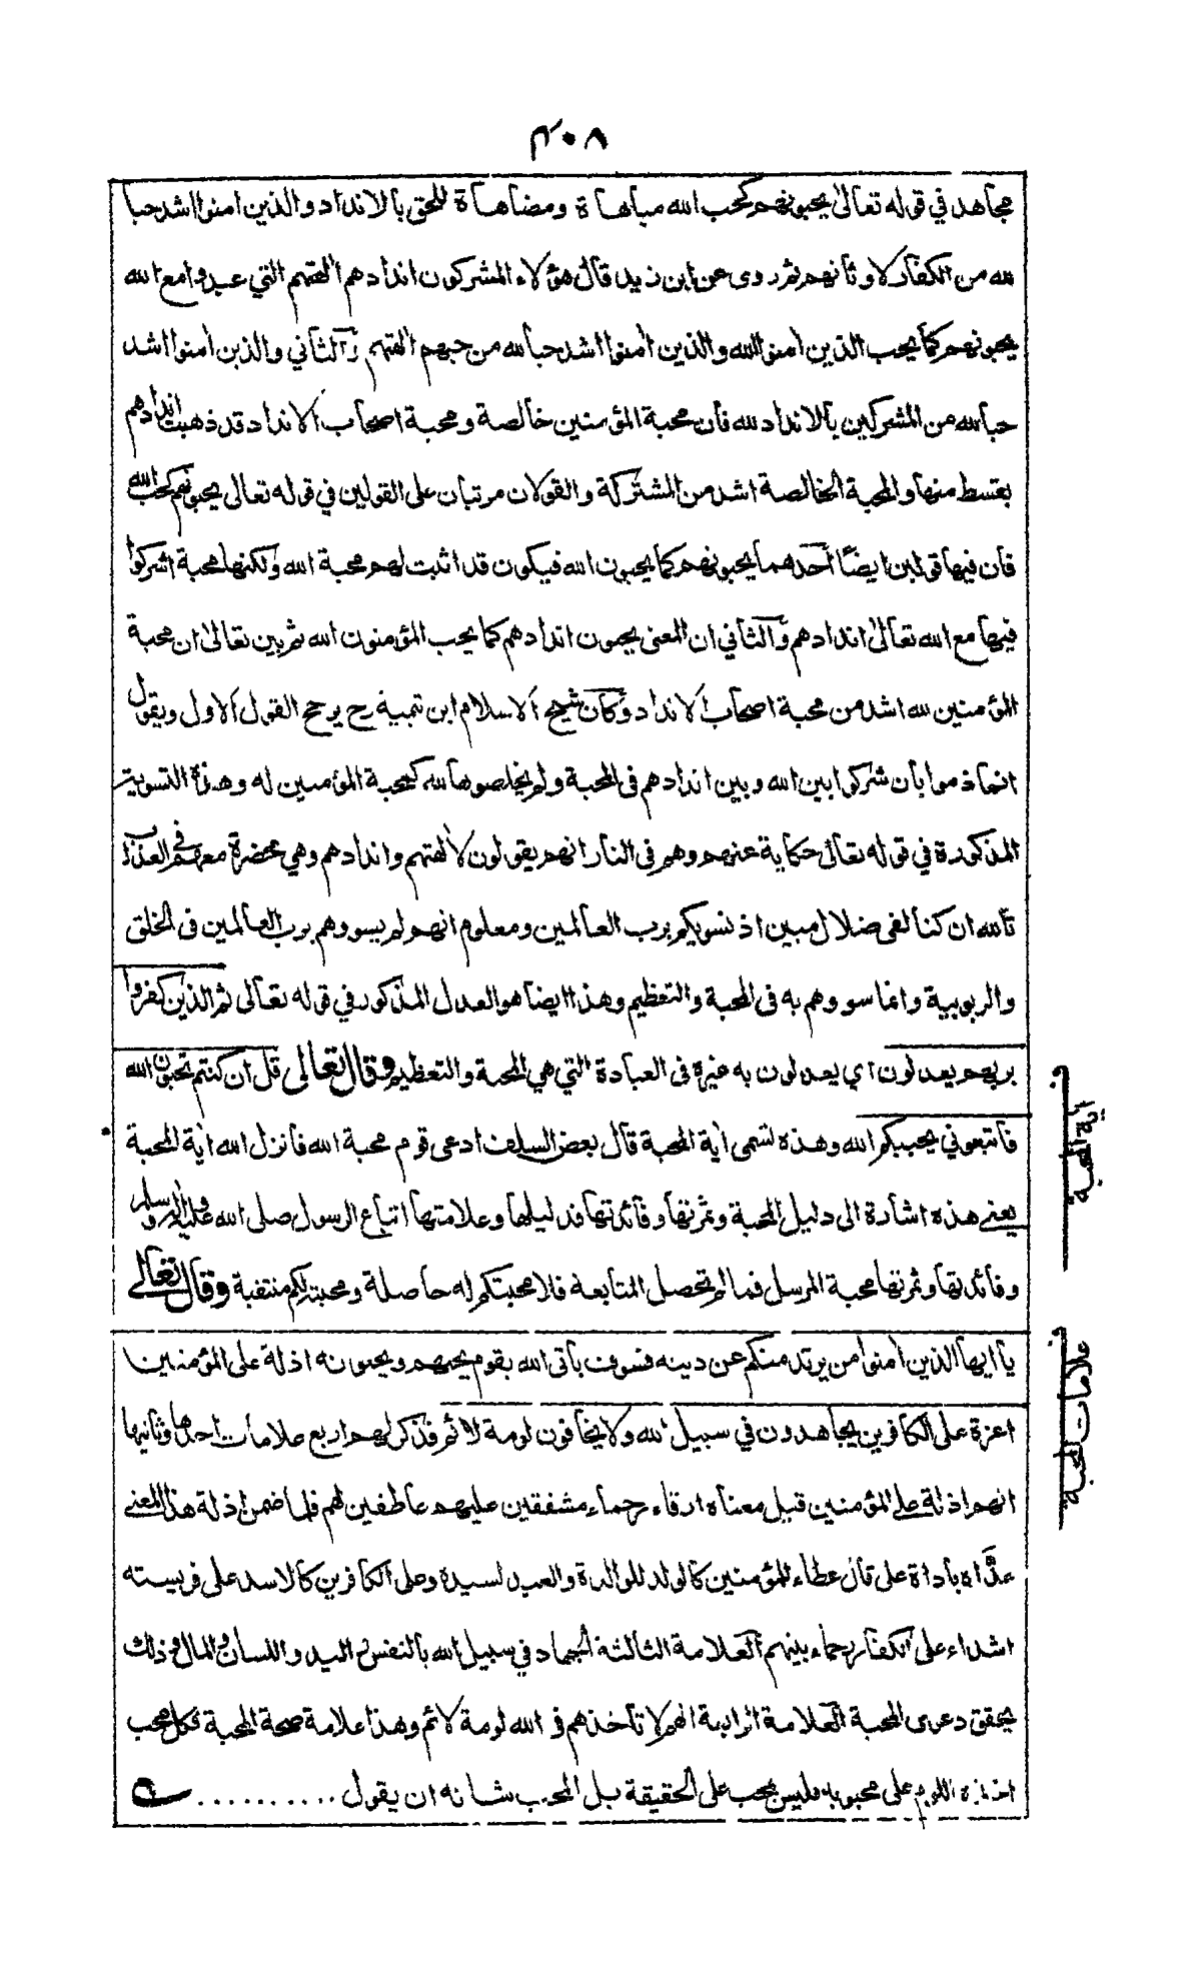 ٣٠٨
مجاهد في قوله تعالى يحبونهم كحب الله مباهاة ومضاهاة للحق بالانداد والذين امنوا اشد حبا
لله من الكفار لاوثانهم ثم روى عن ابن زيد قال هؤلاء المشركون اندادهم الهتهم التي عبدوا مع الله
يحبونهم كما يحب الذين امنوا الله والذين امنوا اشد حبا لله من حبهم الهتهم والثاني والذين امنوا اشد
حبا لله من المشركين بالانداد لله فان محبة المؤمنين خالصة ومحبة اصحاب الانداد قد ذهبت اندادهم
بقسط منها والمحبة الخالصة اشد من المشتركة والقولان مرتبان على القولين في قوله تعالى يحبونهم كحب الله
فان فيها قولين ايضًا احدهما يحبونهم كما يحبون الله فيكون قد اثبت لهم محبة الله ولكنها محبة اشركوا
فيها مع الله تعالى اندادهم والثاني ان المعنى يحبون اندادهم كما يحب المؤمنون الله ثم بين تعالى ان محبة
المؤمنين لله اشد من محبة اصحاب الانداد وكان شيخ الاسلام ابن تيمية رح يرجح القول الاول ويقول
انما ذموا بان شركوا بين الله وبين اندادهم في المحبة ولم يخلصوها لله كمحبة المؤمنين له وهذه التسوية
المذكورة في قوله تعالى حكاية عنهم وهم في النار انهم يقولون لالهتهم واندادهم وهي محضرة معهم في العذاب
تالله ان كنا لفي ضلال مبين اذ نسويكم برب العالمين ومعلوم انهم لم يسووهم برب العالمين في الخلق
والربوبية وانما سووهم به في المحبة والتعظيم وهذا ايضا هو العدل المذكور في قوله تعالى ثم الذين كفروا
بربهم يعدلون اي يعدلون به غيره في العبادة التي هي المحبة والتعظيم وقال تعالى قل ان كنتم تحبون الله
فاتبعوني يحببكم الله وهذه تسمى اية المحبة قال بعض السلف ادعى قوم محبة الله فانزل الله اية المحبة
يعني هذه اشارة الى دليل المحبة وثمرتها وفائدتها فدليلها وعلامتها اتباع الرسول صلى الله عليه واله وسلم
وفائدتها وثمرتها محبة المرسل فما لم تحصل المتابعة فلا محبتكم له حاصلة ومحبته لكم منتفية وقال تعالى
يا ايها الذين امنوا من يرتد منكم عن دينه فسوف يأتى الله بقوم يحبهم ويحبونه اذلة على المؤمنين
اعزة على الكافرين يجاهدون في سبيل الله ولا يخافون لومة لائم فذكر لهم اربع علامات احدها وثانيها
انهم اذلة على المؤمنين قيل معناه ارقاء رحماء مشفقين عليهم عاطفين لهم فلما ضمن اذلة هذا المعنى
عدّاه باداة على قال عطاء للمؤمنين كالولد للوالدة والعبد لسيده وعلى الكافرين كالاسد على فريسته
اشداء على الكفار رحماء بينهم العلامة الثالثة الجهاد في سبيل الله بالنفس واليد واللسان والمال وذلك
يحقق دعوى المحبة العلامة الرابعة انهم لا تأخذهم في الله لومة لائم وهذا علامة صحة المحبة فكل محب
اخذه اللوم على محبوبه فليس بمحب على الحقيقة بل المحب شانه ان يقول . . . . . . . . . .
ف
اية المحبة
ف
علامات المحبة